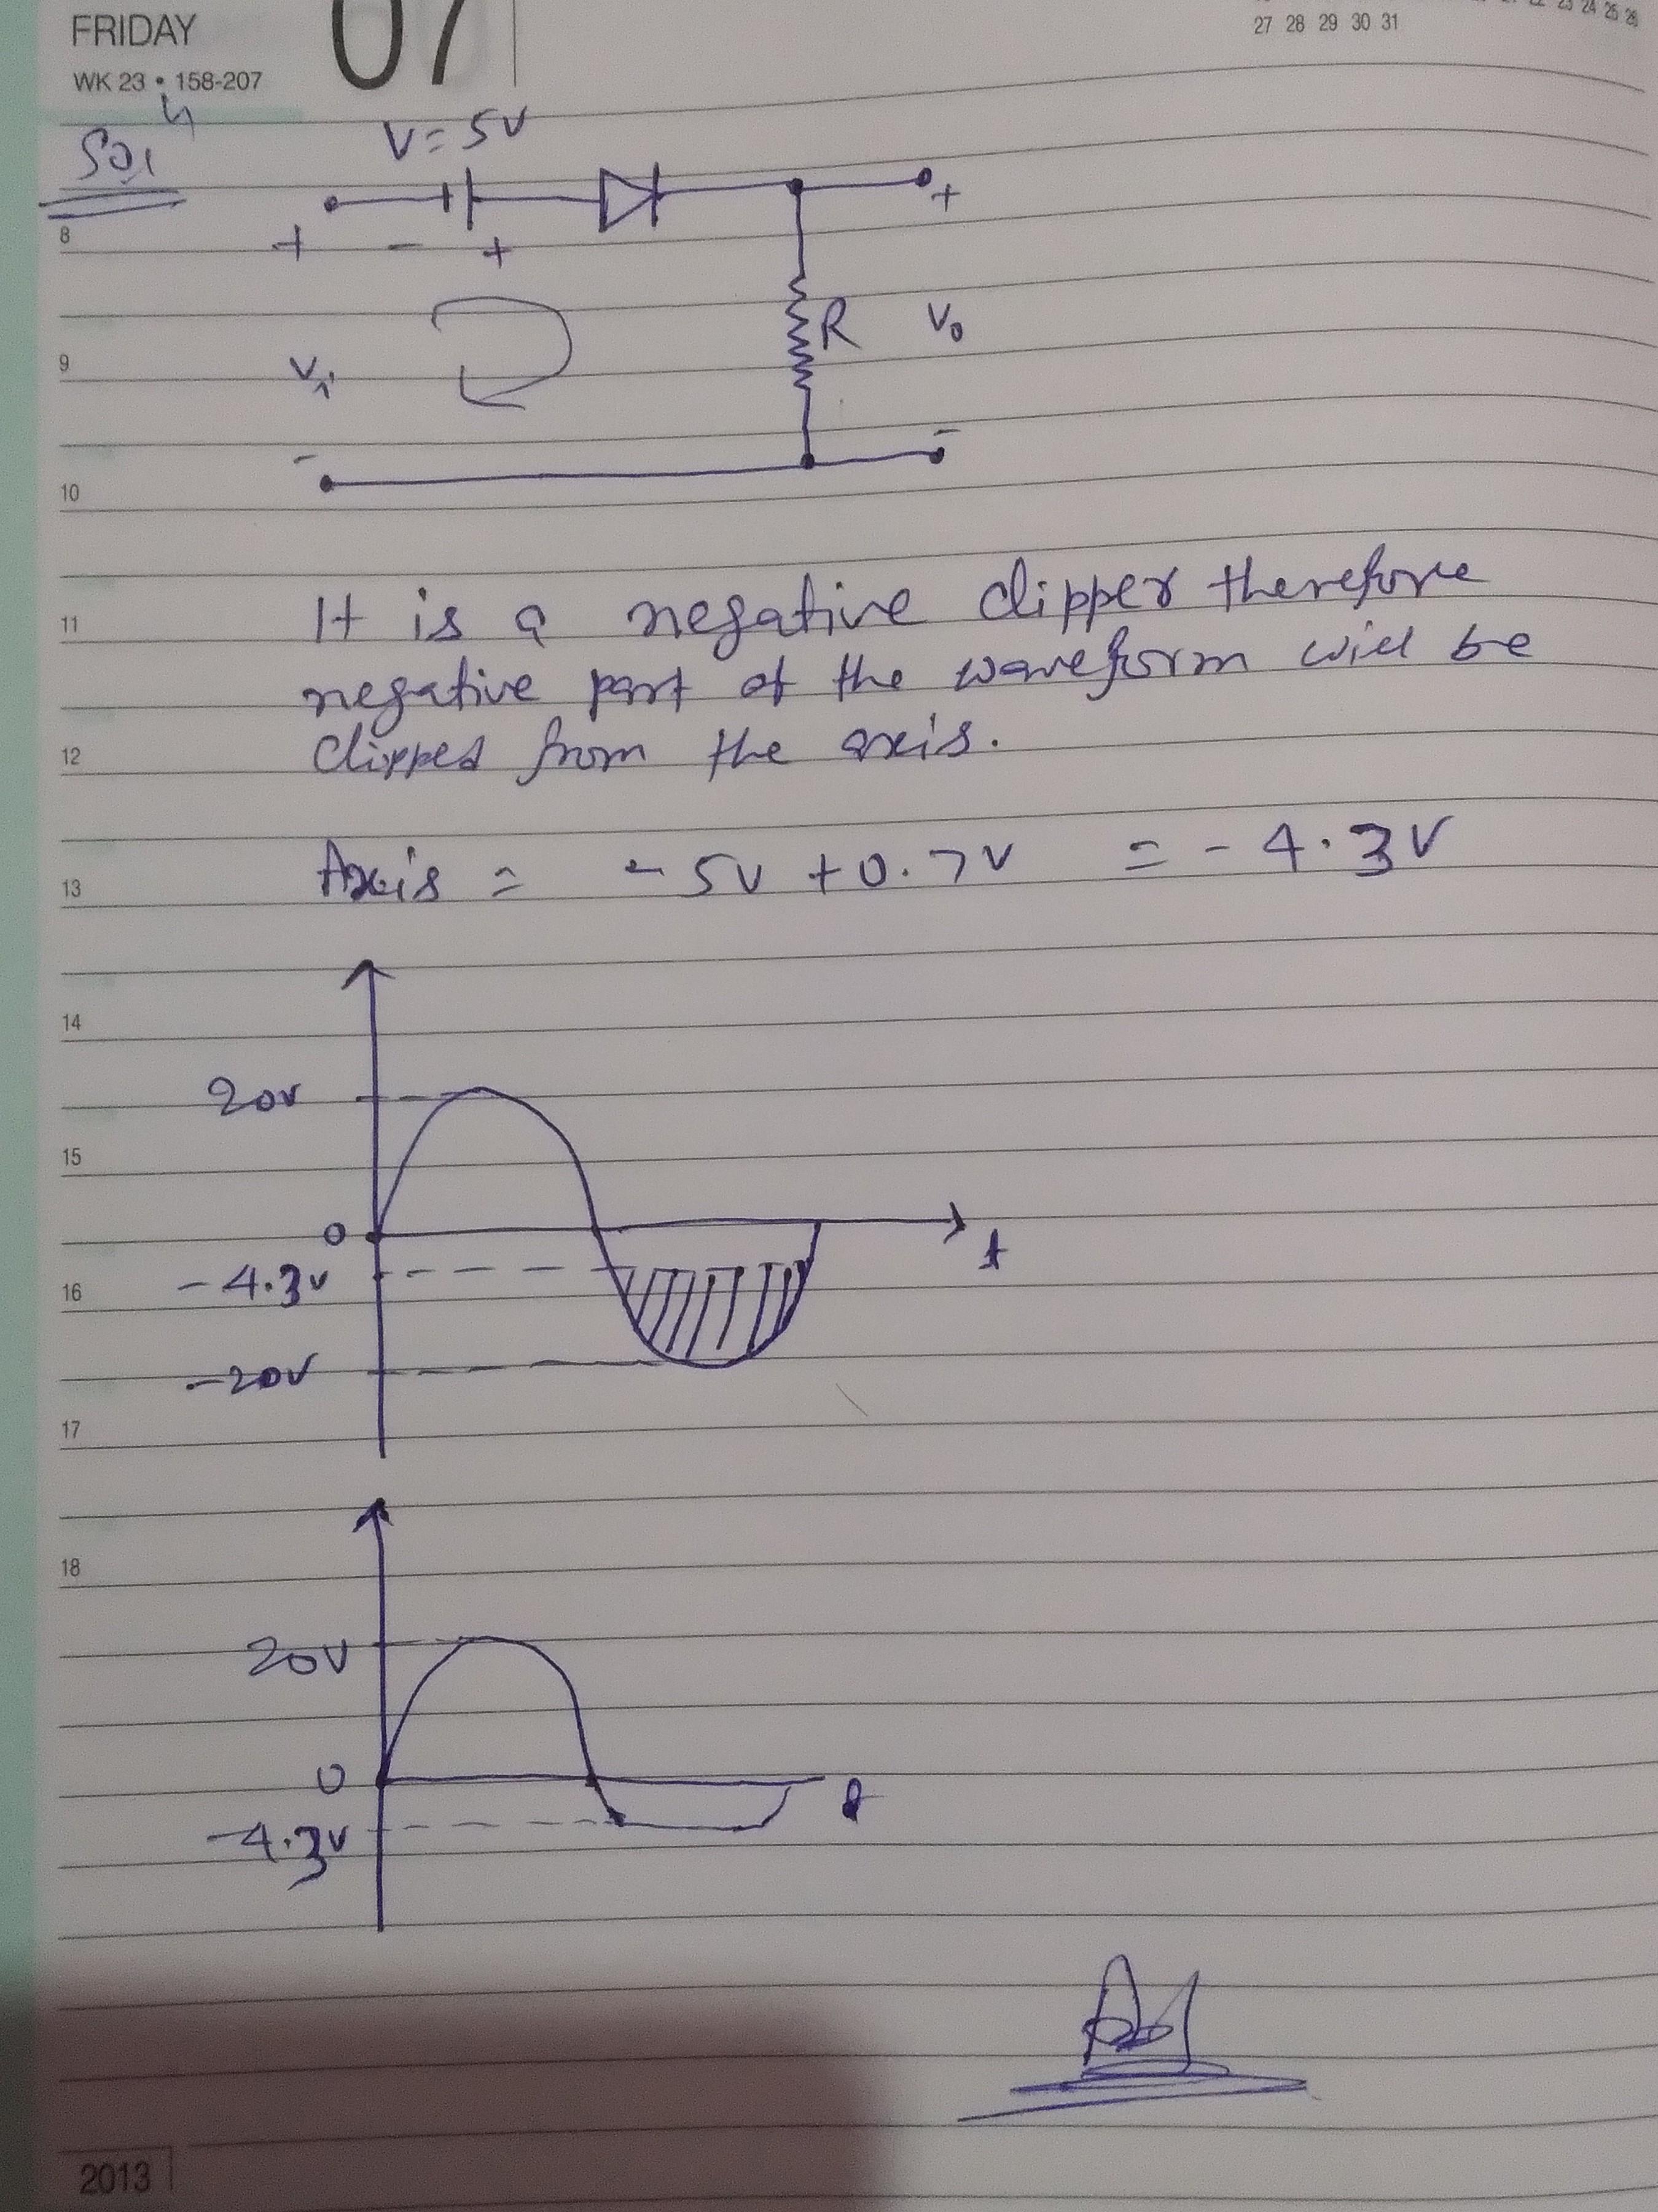 FRIDAY 07
WK 23 • 158-207
27 28 29 30 31
23 24 25 26
Soln
V = 5V
+ - + +
8
R
V0
9
Vi
- -
10
It is a negative clipper therefore
11
negative part of the waveform will be
clipped from the axis.
12
Axis = -5V + 0.7V = -4.3V
13
14
20V
15
0
t
-4.3V
16
-20V
17
18
20V
0
t
-4.3V
2013